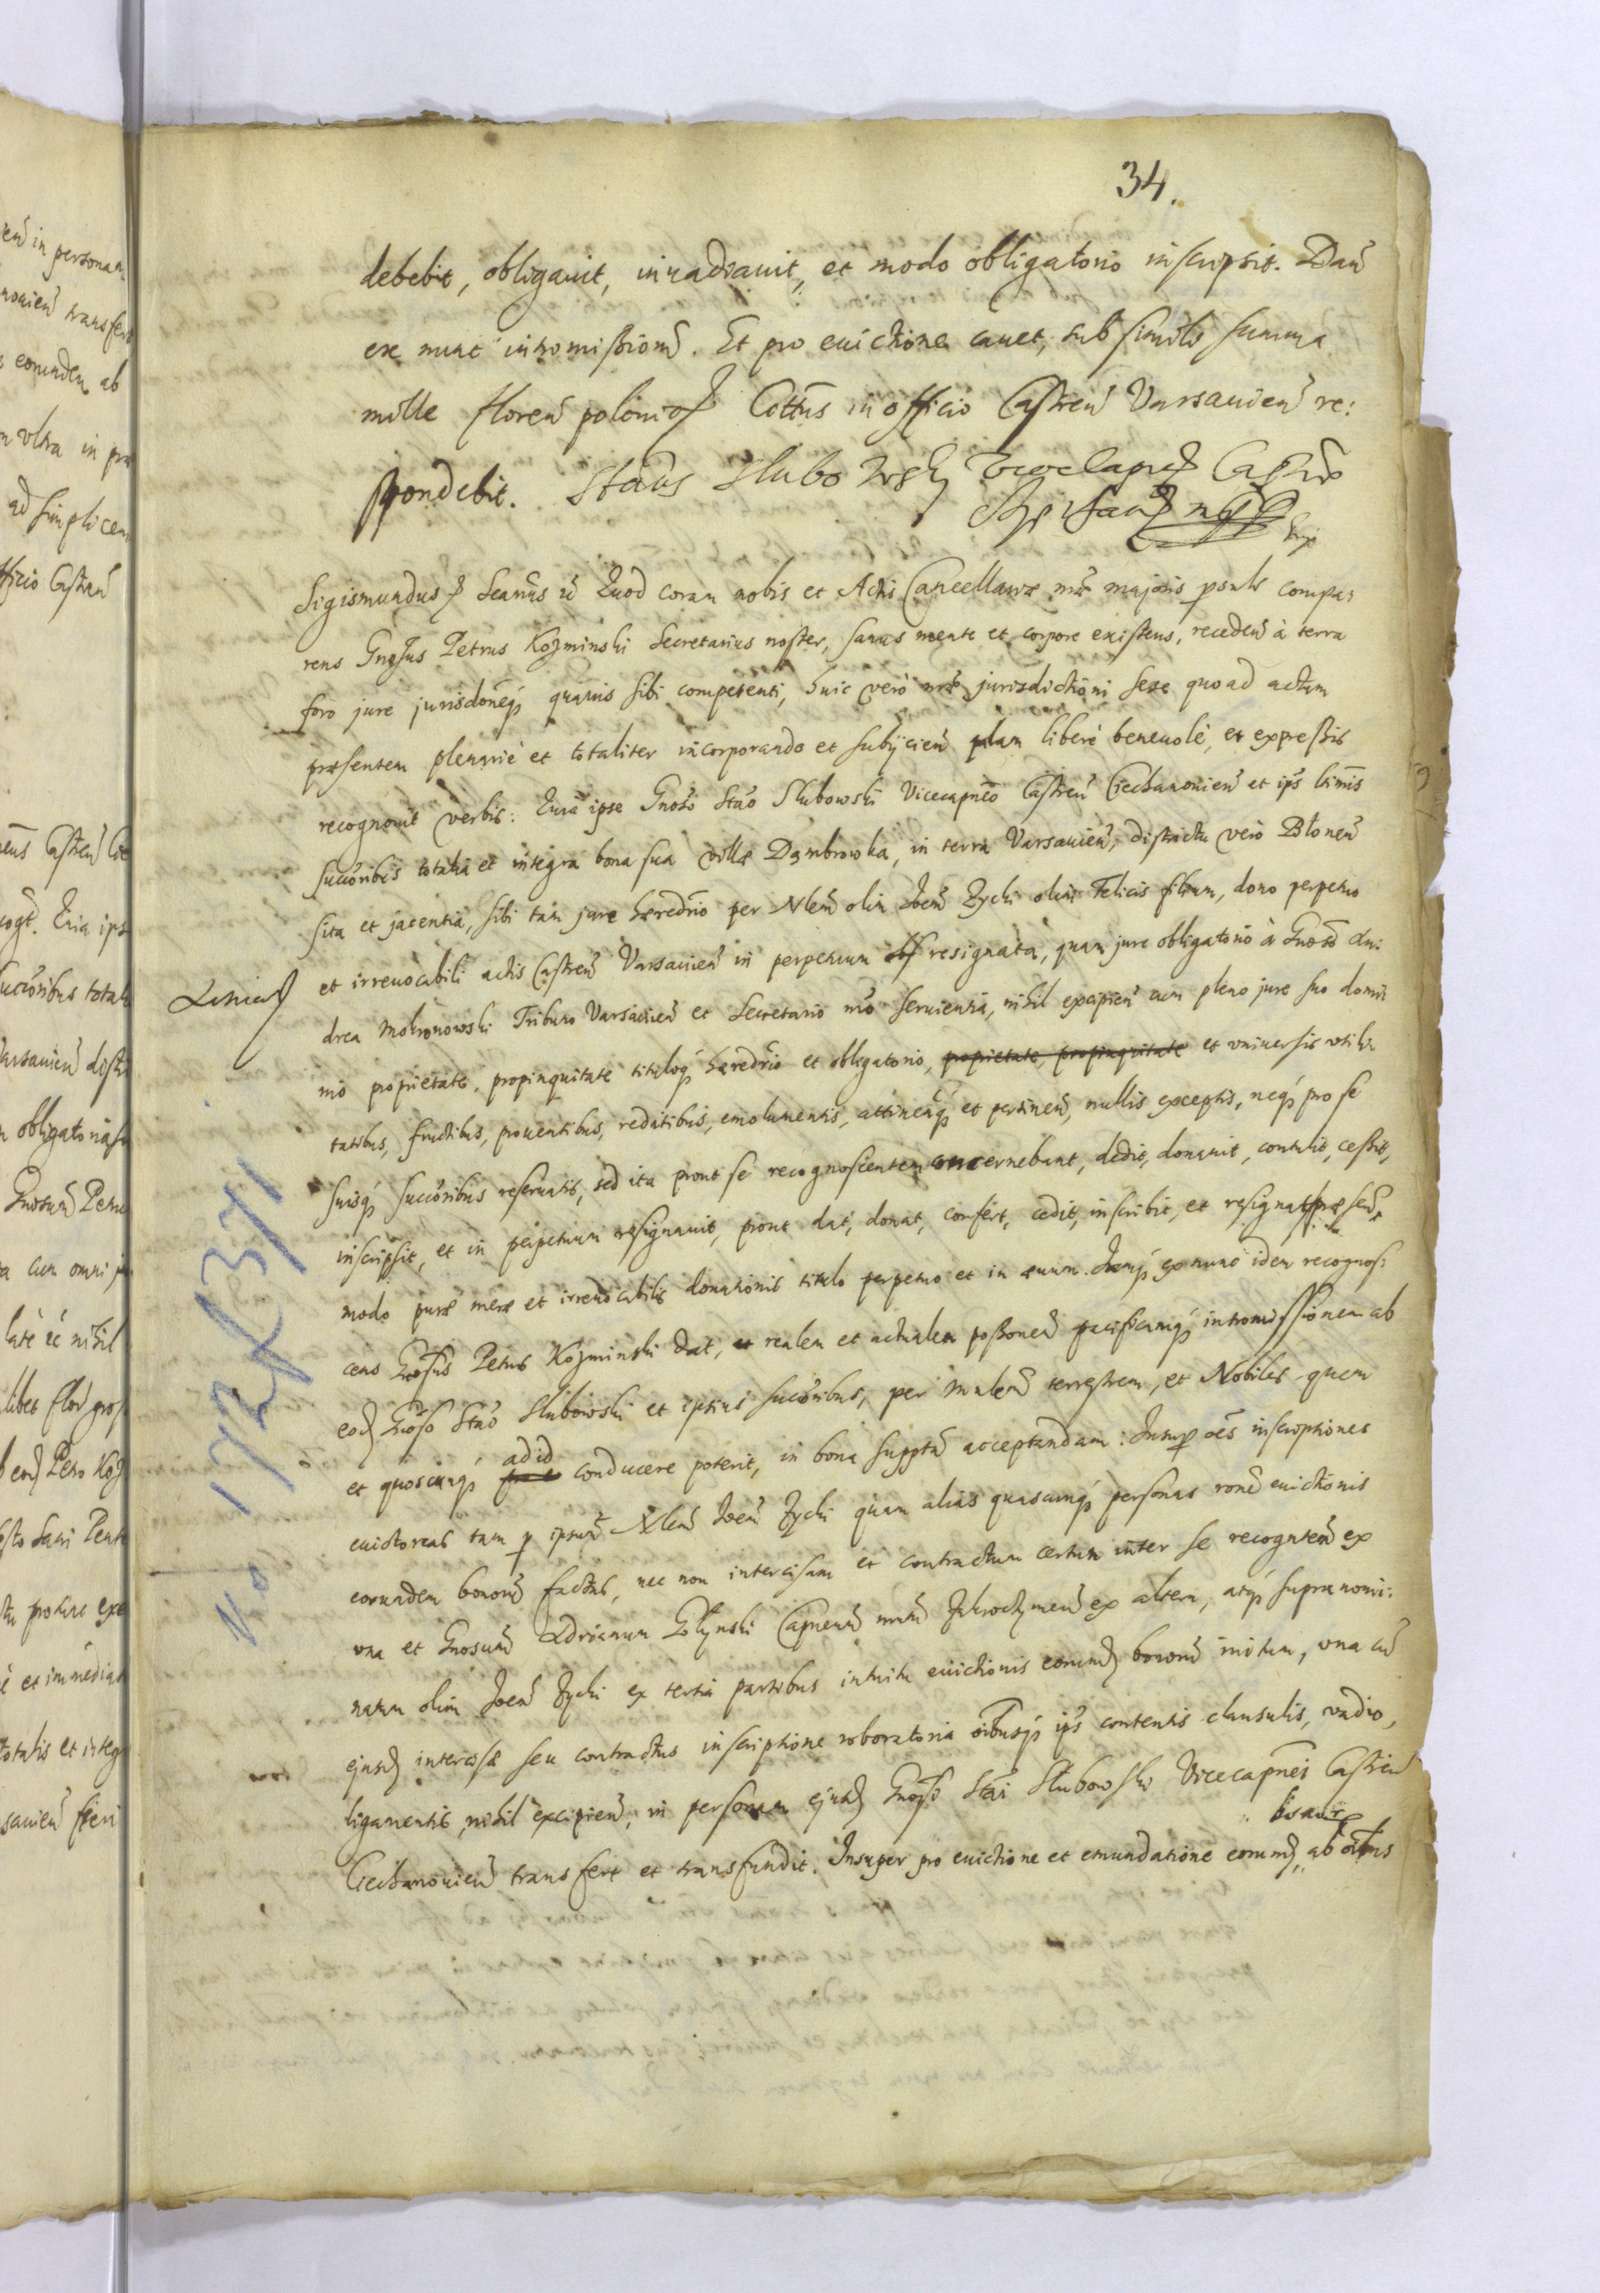 34.
debebit, obligauit, inuadiauit, et modo obligatorio inscripsit. Dan̄
ex nunc intromissionē. Et pro euictione cauet, sub simili summa
mille floren̄ polonic̄ Cittus in officio Castren̄ Varsauien̄ re:
spondebit. Staus Slubowski Vicecapnꝰ Castrē
Sigismundus Scāmus r̄c̄ Quod coram nobis et Actis Cancellariæ nr̄æ majoris psonlr compa:
rens Gnosus Petrus Kozminski Secretarius noster, sanus mente et corpore existens, receden̄ à terra
foro jure jurisdōneq́ quauis sibi competenti, huic verò nr̄æ jurisdictioni sese quo ad actum
præsentem plenariè et totaliter incorporando et subijcien̄ palam liberè beneuolè, et expressis
recognouit verbis: Quia ipse Gnoso Stao Slubowski Vicecapneo Castren̄ Ciechanouien̄ et ips ltimis
succōribus totalia et integra bona sua villæ Dąmbrowka, in terra Varsauien̄, districtu verò Błonen̄
sita et jacentia, sibi tam jure hæredrio per Nlem̄ olim Joen̄ Zychi olim Felicis filium, dono perpetuo
et irreuocabili actis Castren̄ Varsauien̄ in perpetuum resignata, quam jure obligatorio à Gnoso An:
drea Mokronowski Tribuno Varsauien̄ et Secretario nr̄o seruientia, nihil excipien̄ cum pleno jure suo domi
nio proprietate, propinquitate tituloq́ hæredrio et obligatorio, proprietate, propinquitate et vniuersis vtili:
tatibus, fructibus, prouentibus, reditibus, emolumentis, attinenq́ et pertinen̄, nullis exceptis, neq́ pro se
suisq́ succōribus reseruatis, sed ita prout se recognoscentem concernebant, dedit, donauit, contulit, cessit,
inscripsit, et in perpetuum resignauit, prout dat, donat, confert, cedit, inscribit, et resignat præsen̄
modo puræ meræ et irreuocabilis donationis titulo perpetuo et in æuum. Jamq́ ex nunc idem recognos:
cens Gnosus Petrus Kozminski dat, et realem et actualem possonem̄ pacificamq́ intromissionem ab
eod Gnoso Stao Slubowski et ipsius succōribus, per Mnlem̄ terrestrem, et Nobiles quem
et quoscunq́ ad id conducere poterit, in bona supptā acceptandam: Insup oēs inscriptiones
euictoreas tam p ipsum̄ Nlem̄ Joen̄ Zychi quam alias quascunq́ personas ronē euictionis
eorundem bonorū factas, nec non intercisam et contractum certum inter se recognten̄ ex
vna et Gnosum̄ Adrianum Gołynski Capneum̄ nrum̄ Zakroczymen̄ ex altera, atq́ supra nomi:
natum olim Joen̄ Zychi ex tertia partibus intuitu euictionis eorund bonorū initum, vna cū
ejusd intercisæ seu contractus inscriptione roboratoria oībusq́ ips contentis clausulis, vadio,
ligamentis, nihil excipien̄, in personam ejusd Gnosi Stai Slubowski Vicecapnei Castren̄
bonorū
Ciechanouien̄ transfert et transfundit. Insuper pro euictione et emundatione eorund, ab oībus